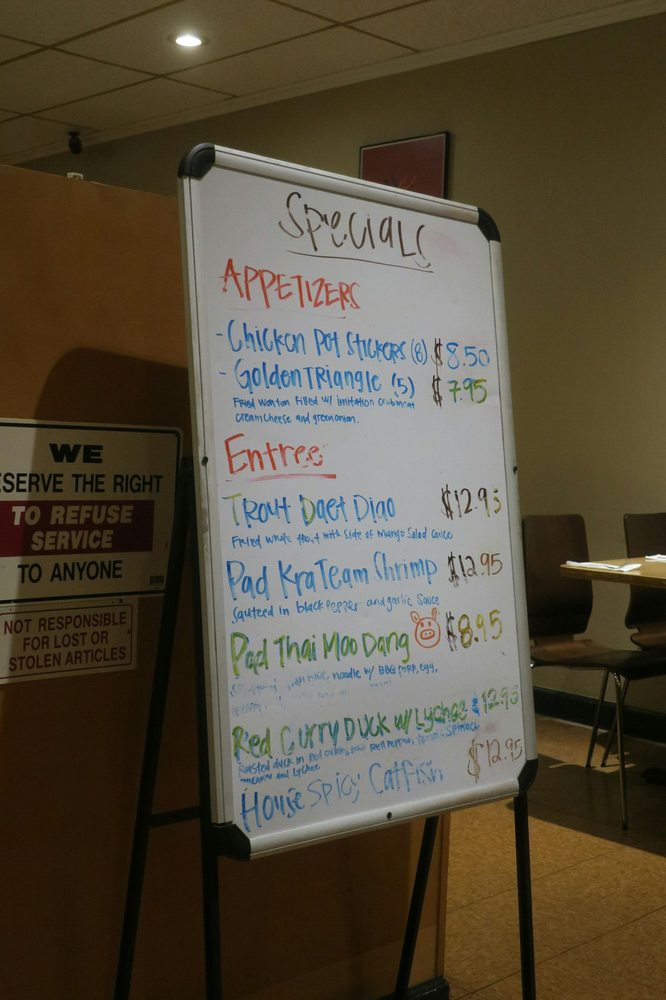 Specials
APPETIZERS
- Chicken Pot Stickers (8) $8.50
- Golden Triangle (5) $7.95
Fried wonton filled w/ imitation crabmeat
cream cheese and green onion.
Entree
Trout Daet Diao $12.95
Fried whole trout with side of Mango Salad Sauce
Pad Kra Team Shrimp $12.95
Sauteed in black pepper and garlic sauce
Pad Thai Moo Dang $8.95
noodle w/ BBQ Pork, egg,
Red Curry Duck w/ Lychee $12.95
Roasted duck in red curry, bell
and Lychee
House Spicy Catfish $12.95
WE
ESERVE THE RIGHT
TO REFUSE
SERVICE
TO ANYONE
NOT RESPONSIBLE
FOR LOST OR
STOLEN ARTICLES